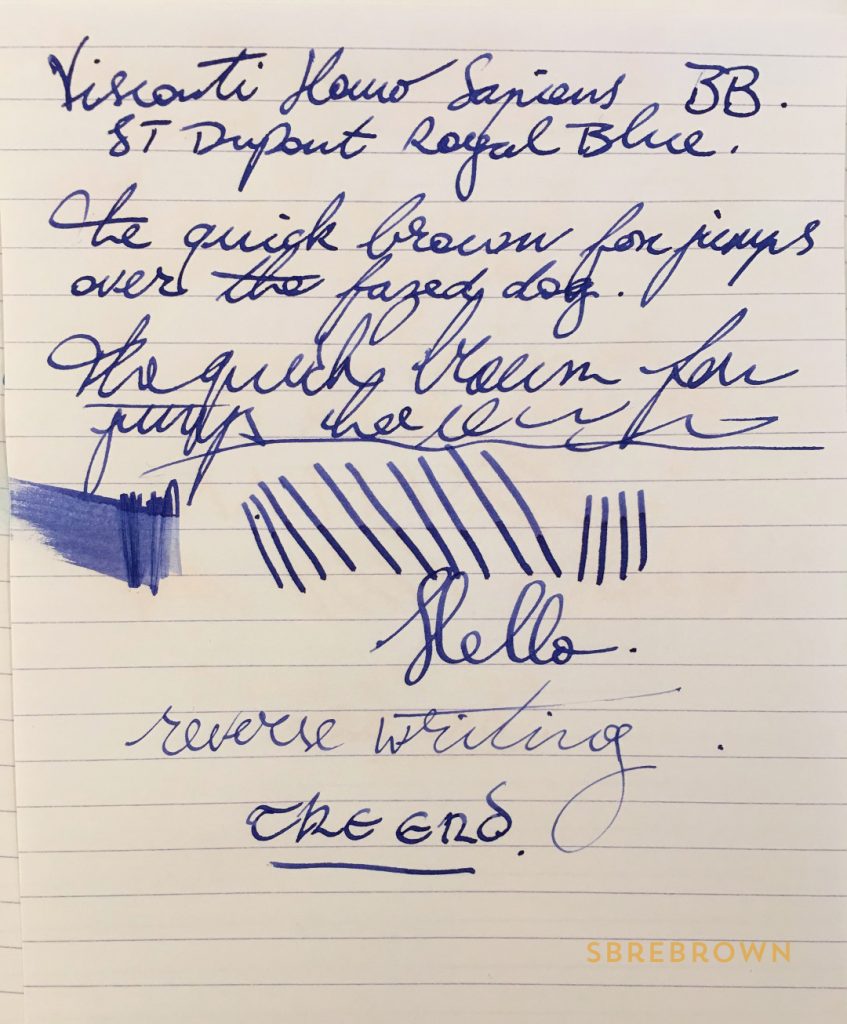 Visconti Homo Sapiens BB.
ST Dupont Royal Blue.
the quick brown fox jumps
over the fazed dog.
the quick brown fox
jumps
Hello.
reverse writing.
THE END.
SBREBROWN